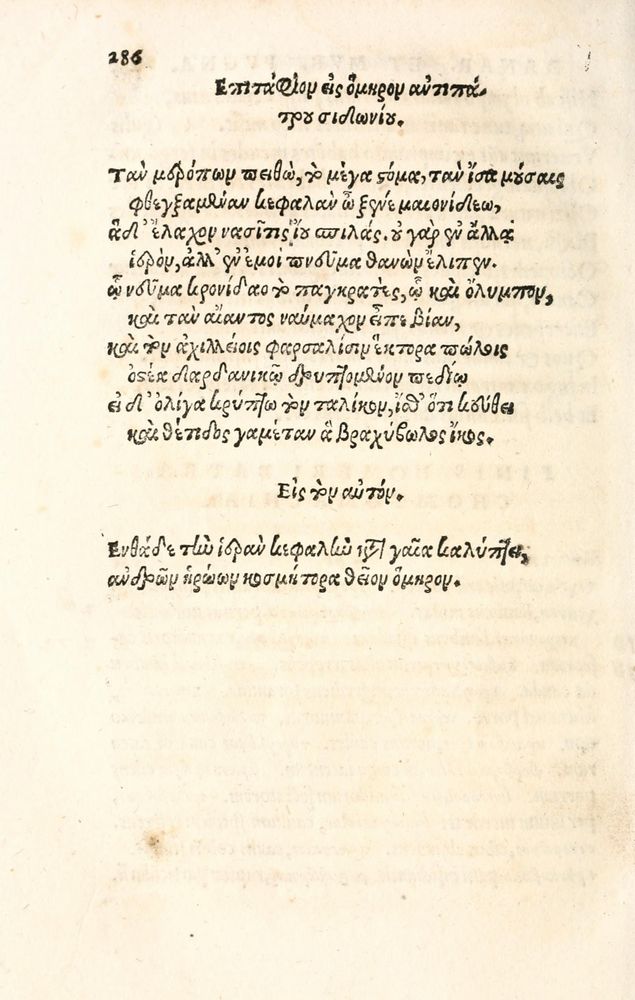 286
Επιτάφιον εἰς ὅμηρον αὐτιπά-
τρου σιδωνίου.
Τὰν μερόπων πειθὼ, τὸ μέγα στόμα, τὰν ἴσα μούσαις
φθεγξαμέναν κεφαλὰν ὦ ξεῖνε μαιονίδεω,
ἅδ' ἔλαχον νασῖτις ἴου σπιλάς. οὐ γὰρ ἐν ἄλλᾳ
ἱερὸν, ἀλλ' ἐν ἐμοὶ πνεῦμα θανὼν ἔλιπεν.
ᾧ νεῦμα κρονίδαο τὸ παγκρατὲς, ᾧ καὶ ὄλυμπον,
καὶ τὰν αἴαντος ναύμαχον εἶπε βίαν,
καὶ τὸν ἀχιλλείοις φαρσαλίσιν ἕκτορα πώλοις
ὀστέα δαρδανικῷ δρυπτόμενον πεδίῳ
εἰ δ' ὀλίγα κρύπτω τὸν ταλίκον, ἴσθ' ὅτι κεύθει
καὶ θέτιδος γαμέταν ἁ βραχύβωλος ἴκος.
Εἰς τὸν αὐτόν.
Ενθάδε τὴν ἱερὰν κεφαλὴν κατὰ γαῖα καλύπτει,
ἀνδρῶν ἡρώων κοσμήτορα θεῖον ὅμηρον.